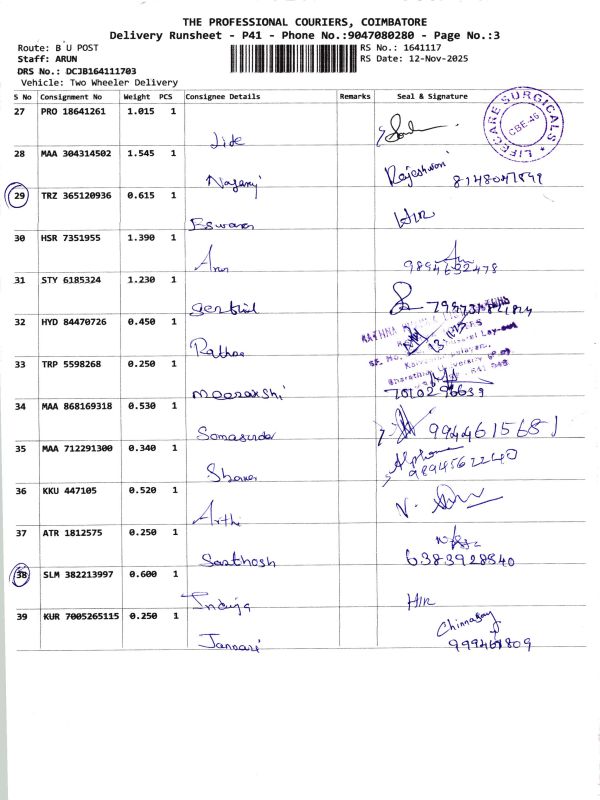 THE PROFESSIONAL COURIERS, COIMBATORE
Delivery Runsheet - P41 - Phone No.:9047080280 - Page No.:3
Route: B U POST
RS No.: 1641117
Staff: ARUN
RS Date: 12-Nov-2025
DRS No.: DCJB164111703
Vehicle: Two Wheeler Delivery
S No Consignment No Weight PCS Consignee Details Remarks Seal & Signature
LIFECARE SURGICALS
CBE-46
27 PRO 18641261 1.015 1
28 MAA 304314502 1.545 1 Rajeshwari
29 TRZ 365120936 0.615 1
Eswaran
30 HSR 7351955 1.390 1
Arun 9894632478
31 STY 6185324 1.230 1
32 HYD 84470726 0.450 1
33 TRP 5598268 0.250 1
Meenakshi 7010296639
34 MAA 868169318 0.530 1
9944615681
35 MAA 712291300 0.340 1 Alphone
36 KKU 447105 0.520 1
Arthi
37 ATR 1812575 0.250 1
Santhosh 6383928840
38 SLM 382213997 0.600 1
Induja
39 KUR 7005265115 0.250 1
Janani